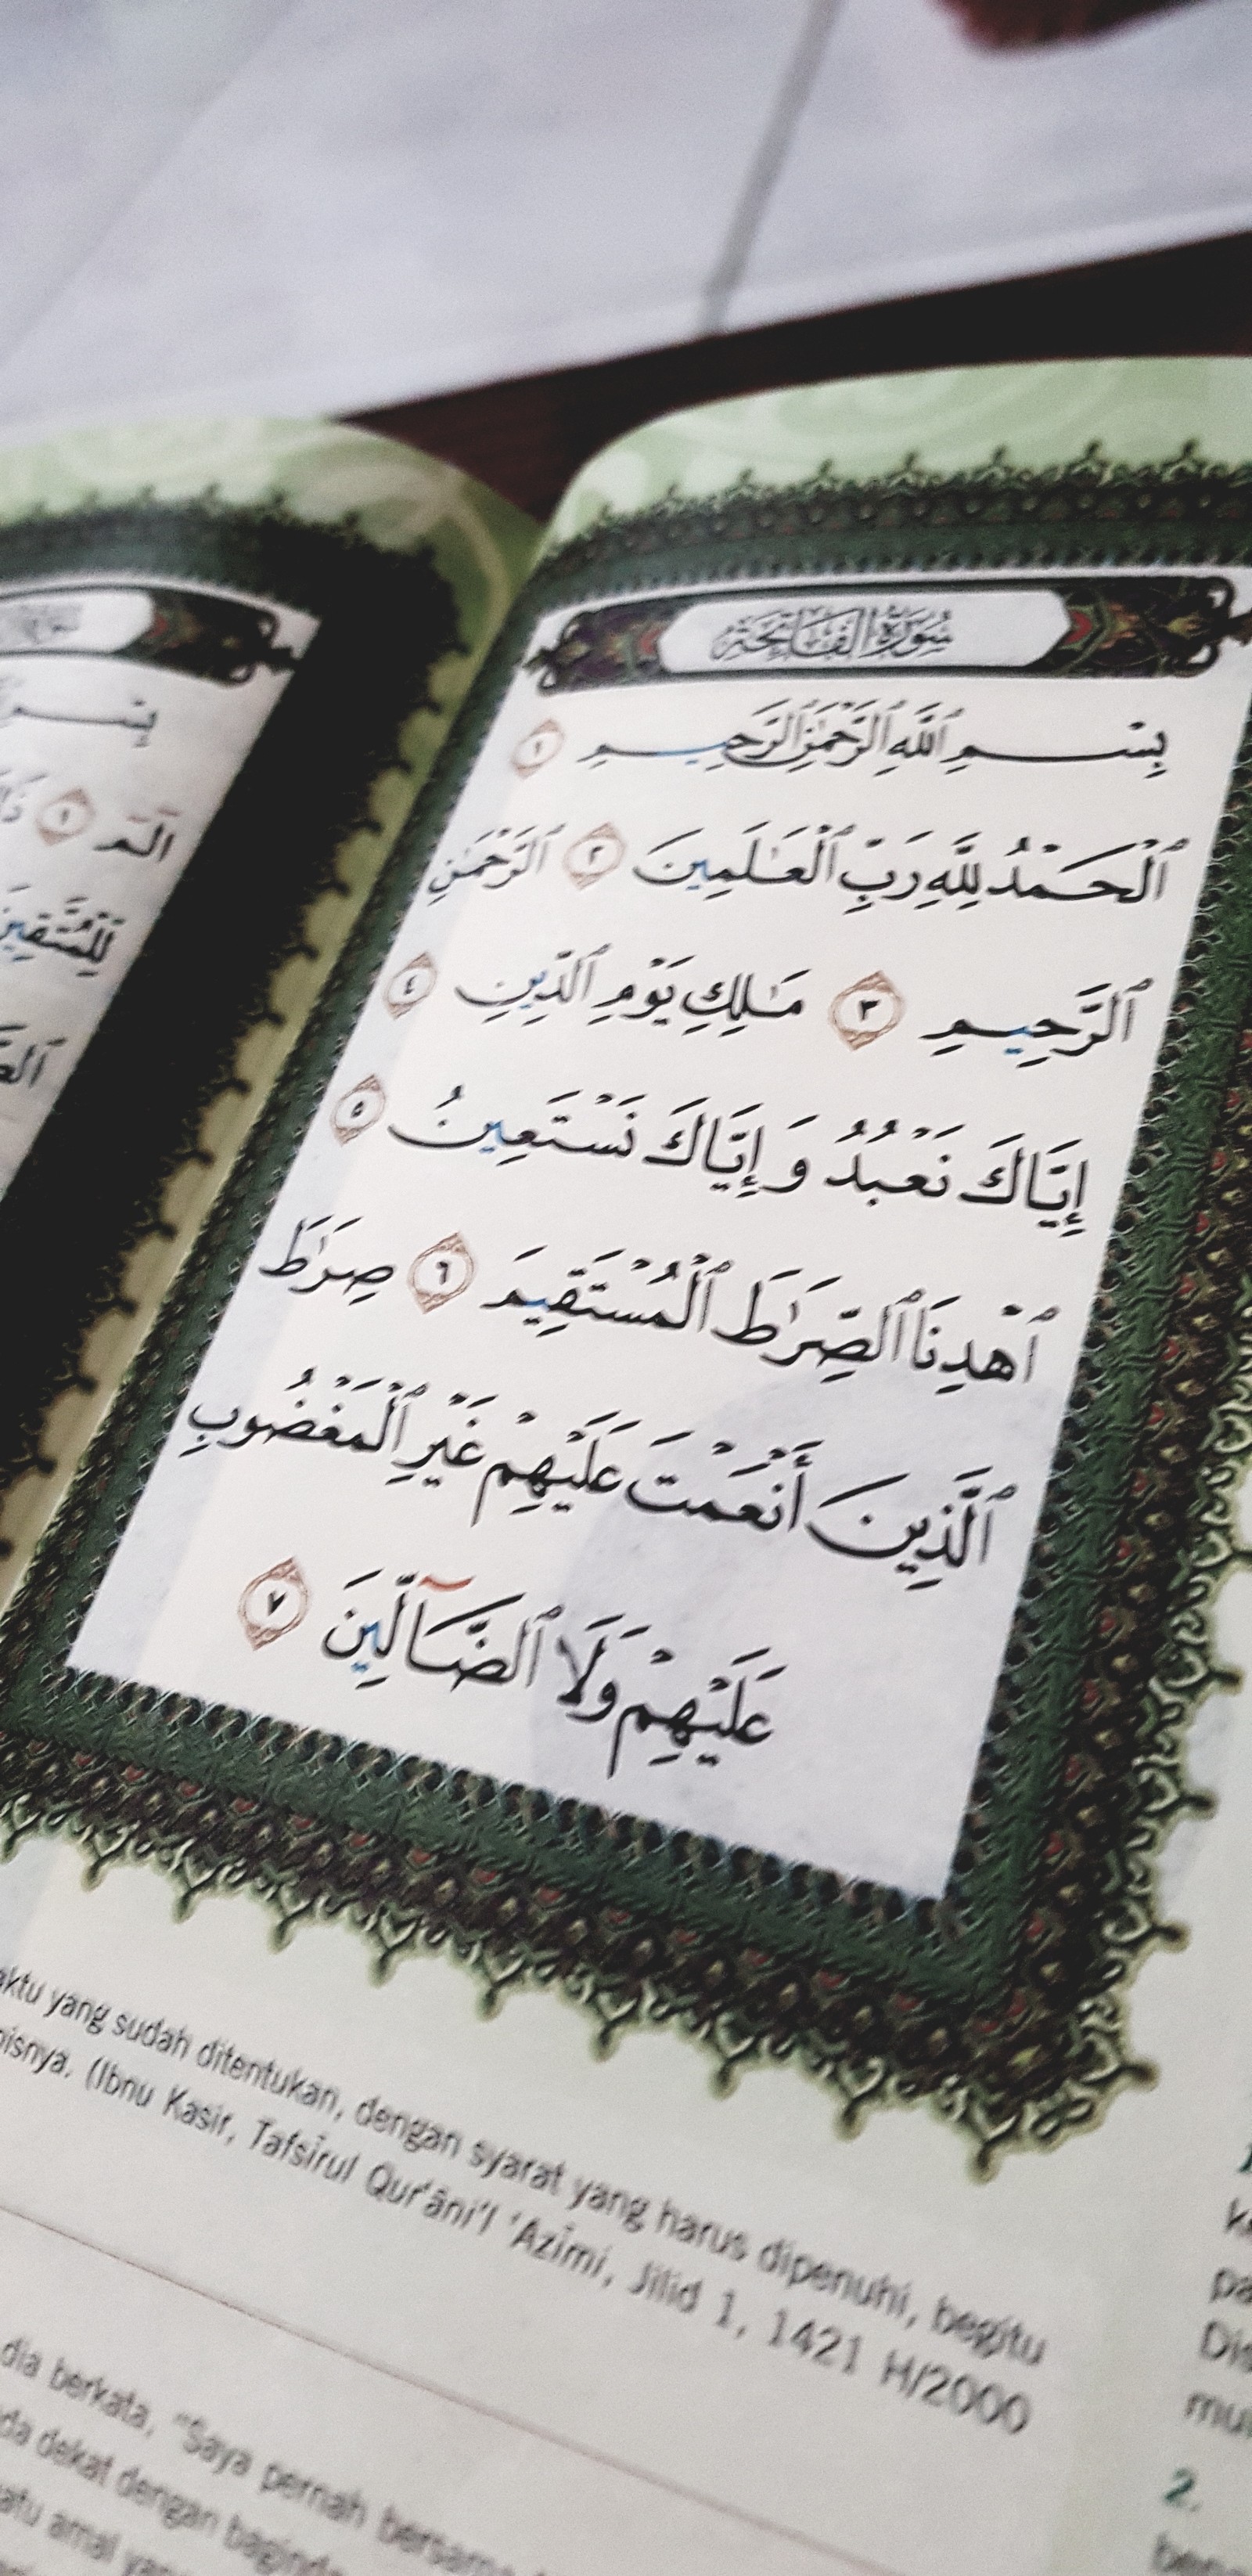 سُورَةُ الْفَاتِحَةِ
بِسْمِ ٱللَّهِ ٱلرَّحْمَٰنِ ٱلرَّحِيمِ ١
ٱلْحَمْدُ لِلَّهِ رَبِّ ٱلْعَٰلَمِينَ ٢ ٱلرَّحْمَٰنِ
ٱلرَّحِيمِ ٣ مَٰلِكِ يَوْمِ ٱلدِّينِ ٤
إِيَّاكَ نَعْبُدُ وَإِيَّاكَ نَسْتَعِينُ ٥
ٱهْدِنَا ٱلصِّرَٰطَ ٱلْمُسْتَقِيمَ ٦ صِرَٰطَ
ٱلَّذِينَ أَنْعَمْتَ عَلَيْهِمْ غَيْرِ ٱلْمَغْضُوبِ
عَلَيْهِمْ وَلَا ٱلضَّآلِّينَ ٧
yang sudah ditentukan, dengan syarat yang harus dipenuhi, begitu
(Ibnu Kasir, Tafsīrul Qur'āni'l 'Azīmi, Jilid 1, 1421 H/2000
dia berkata, "Saya pernah bersama
dekat dengan
amal
بِسْمِ
الٓمٓ ١
2.